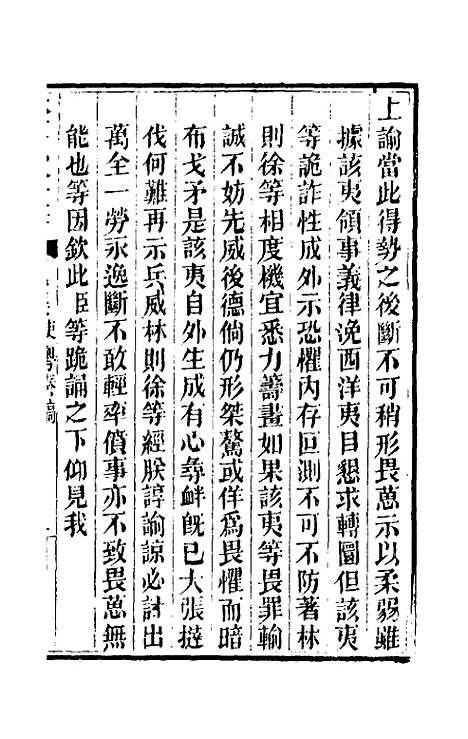 上諭當此得勢之後斷不可稍形畏葸示以柔弱雖
據該夷領事義律浼西洋夷目懇求轉圜但該夷
等詭詐性成外示恐懼內存叵測不可不防著林
則徐等相度機宜悉力籌畫如果該夷等畏罪輸
誠不妨先威後德倘仍形桀驁或佯爲畏懼而暗
布戈矛是該夷自外生成有心尋衅旣已大張撻
伐何難再示兵威林則徐等經朕諄諭諒必計出
萬全一勞永逸斷不敢輕率僨事亦不致畏葸無
能也等因欽此臣等跪誦之下仰見我
使粵奏稿